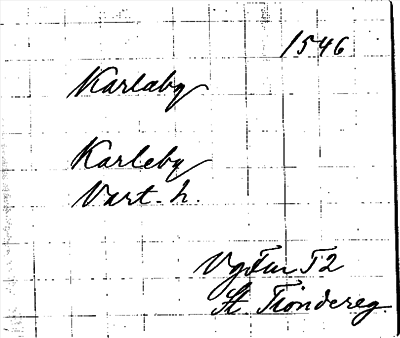 1546
Karlaby
Karleby
Vart. h.
Vg Fur T2
St. Tiondereg.